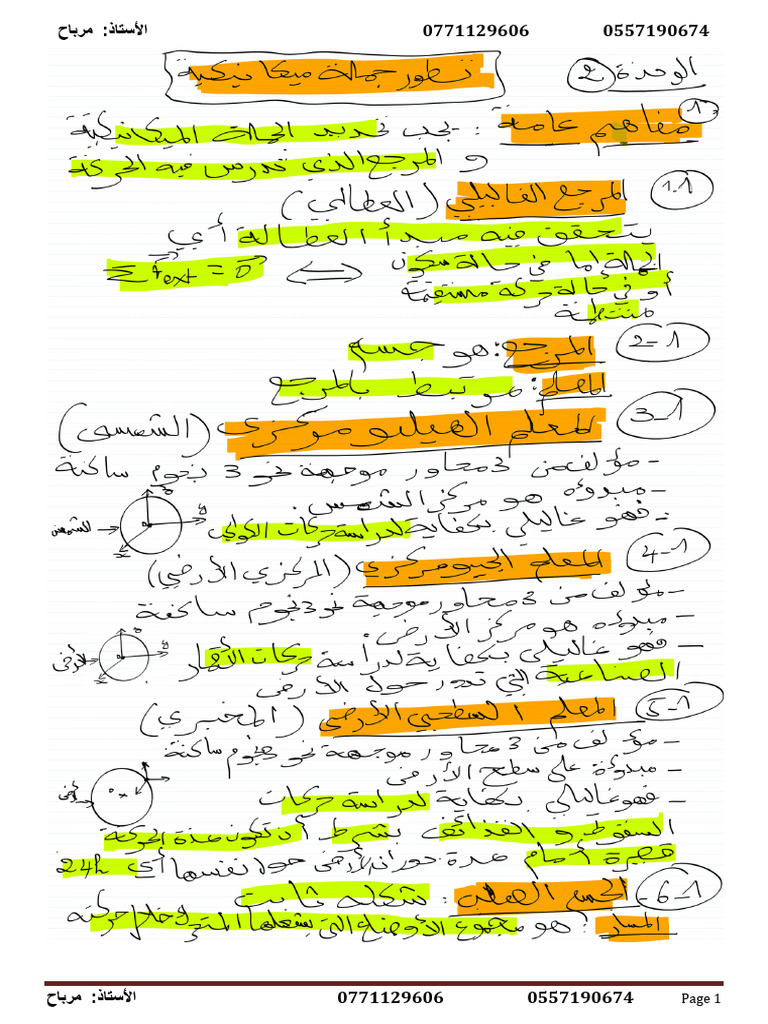 الأستاذ: مرباح 0771129606 0557190674
الوحدة 2 تطور جملة ميكانيكية
1. مفاهيم عامة: - يجب تحديد الجملة الميكانيكية
و المرجع الذي تدرس فيه الحركة
1-1 المرجع الغاليلي (العطالي)
يتحقق فيه مبدأ العطالة أي
الجملة إما في حالة سكون ⇔ Σf⃗ext = 0⃗
أو في حالة حركة مستقيمة
منتظمة
2-1 المرجع: هو جسم
المعلم: مرتبط بالمرجع
3-1 المعلم الهيليومركزي (الشمسي)
- مؤلف من 3 محاور موجهة نحو 3 نجوم ساكنة
- مبدؤه هو مركز الشمس.
- فهو غاليلي بكفاية لدراسة حركات الكواكب
الشمس
4-1 المعلم الجيومركزي (المركزي الأرضي)
- مؤلف من 3 محاور موجهة نحو 3 نجوم ساكنة
- مبدؤه هو مركز الأرض.
- فهو غاليلي بكفاية لدراسة حركات الأقمار
الأرض
الصناعية التي تدور حول الأرض
5-1 المعلم السطحي الأرضي (المخبري)
- مؤلف من 3 محاور موجهة نحو 3 نجوم ساكنة
- مبدؤه على سطح الأرض
- فهو غاليلي بكفاية لدراسة حركات
السقوط و القذائف بشرط أن تكون مدة الحركة
قصيرة أمام مدة دوران الأرض حول نفسها أي 24h
6-1 الجسم الصلب: شكله ثابت
المسار: هو مجموع الأوضاع التي يشغلها المتحرك خلال حركته
الأستاذ: مرباح 0771129606 0557190674 Page 1